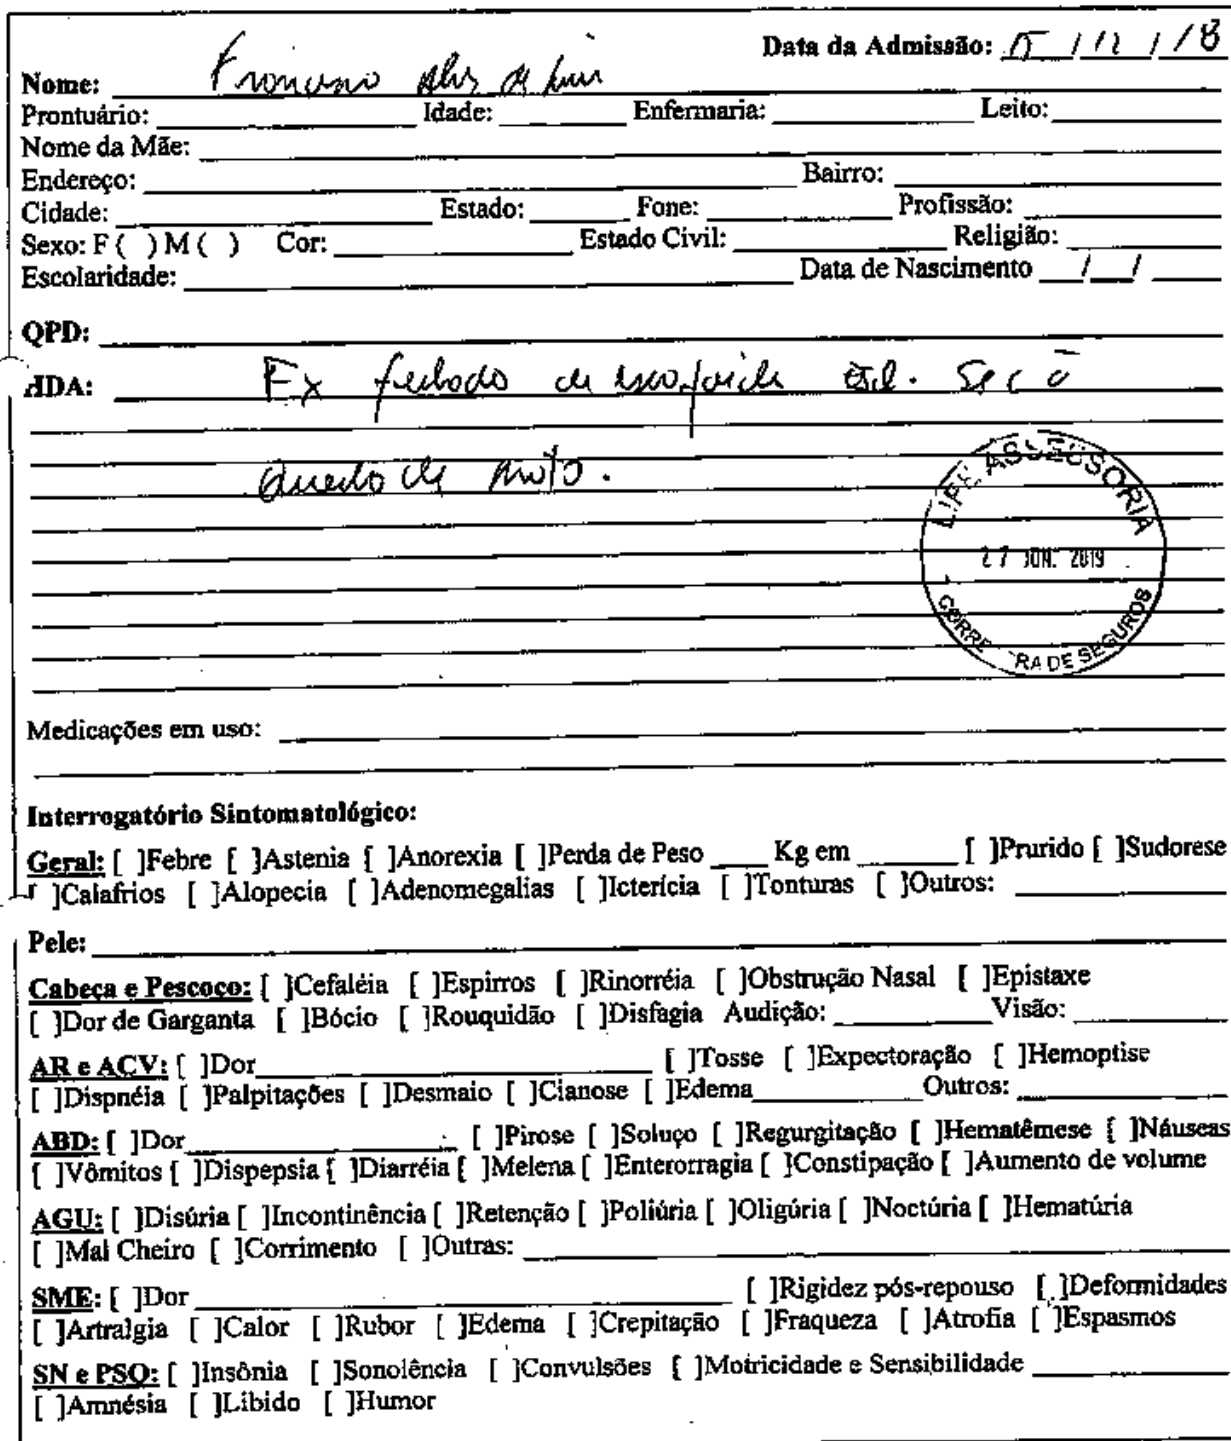 Data da Admissão: 15 / 12 / 18
Nome: Francisco Alves de Lima
Prontuário: Idade: Enfermaria: Leito:
Nome da Mãe:
Endereço: Bairro:
Cidade: Estado: Fone: Profissão:
Sexo: F ( ) M ( ) Cor: Estado Civil: Religião:
Escolaridade: Data de Nascimento / /
QPD:
HDA: Fx fechada de escafoide Sec à
Queda de moto.
LIFE ASSESSORIA
27 JUN. 2019
CORRE RA DE SEGUROS
Medicações em uso:
Interrogatório Sintomatológico:
Geral: [ ]Febre [ ]Astenia [ ]Anorexia [ ]Perda de Peso ____ Kg em ____ [ ]Prurido [ ]Sudorese
[ ]Calafrios [ ]Alopecia [ ]Adenomegalias [ ]Icterícia [ ]Tonturas [ ]Outros:
Pele:
Cabeça e Pescoço: [ ]Cefaléia [ ]Espirros [ ]Rinorréia [ ]Obstrução Nasal [ ]Epistaxe
[ ]Dor de Garganta [ ]Bócio [ ]Rouquidão [ ]Disfagia Audição: Visão:
AR e ACV: [ ]Dor [ ]Tosse [ ]Expectoração [ ]Hemoptise
[ ]Dispnéia [ ]Palpitações [ ]Desmaio [ ]Cianose [ ]Edema Outros:
ABD: [ ]Dor [ ]Pirose [ ]Soluço [ ]Regurgitação [ ]Hematêmese [ ]Náuseas
[ ]Vômitos [ ]Dispepsia [ ]Diarréia [ ]Melena [ ]Enterorragia [ ]Constipação [ ]Aumento de volume
AGU: [ ]Disúria [ ]Incontinência [ ]Retenção [ ]Poliúria [ ]Oligúria [ ]Noctúria [ ]Hematúria
[ ]Mal Cheiro [ ]Corrimento [ ]Outras:
SME: [ ]Dor [ ]Rigidez pós-repouso [ ]Deformidades
[ ]Artralgia [ ]Calor [ ]Rubor [ ]Edema [ ]Crepitação [ ]Fraqueza [ ]Atrofia [ ]Espasmos
SN e PSQ: [ ]Insônia [ ]Sonolência [ ]Convulsões [ ]Motricidade e Sensibilidade
[ ]Amnésia [ ]Libido [ ]Humor